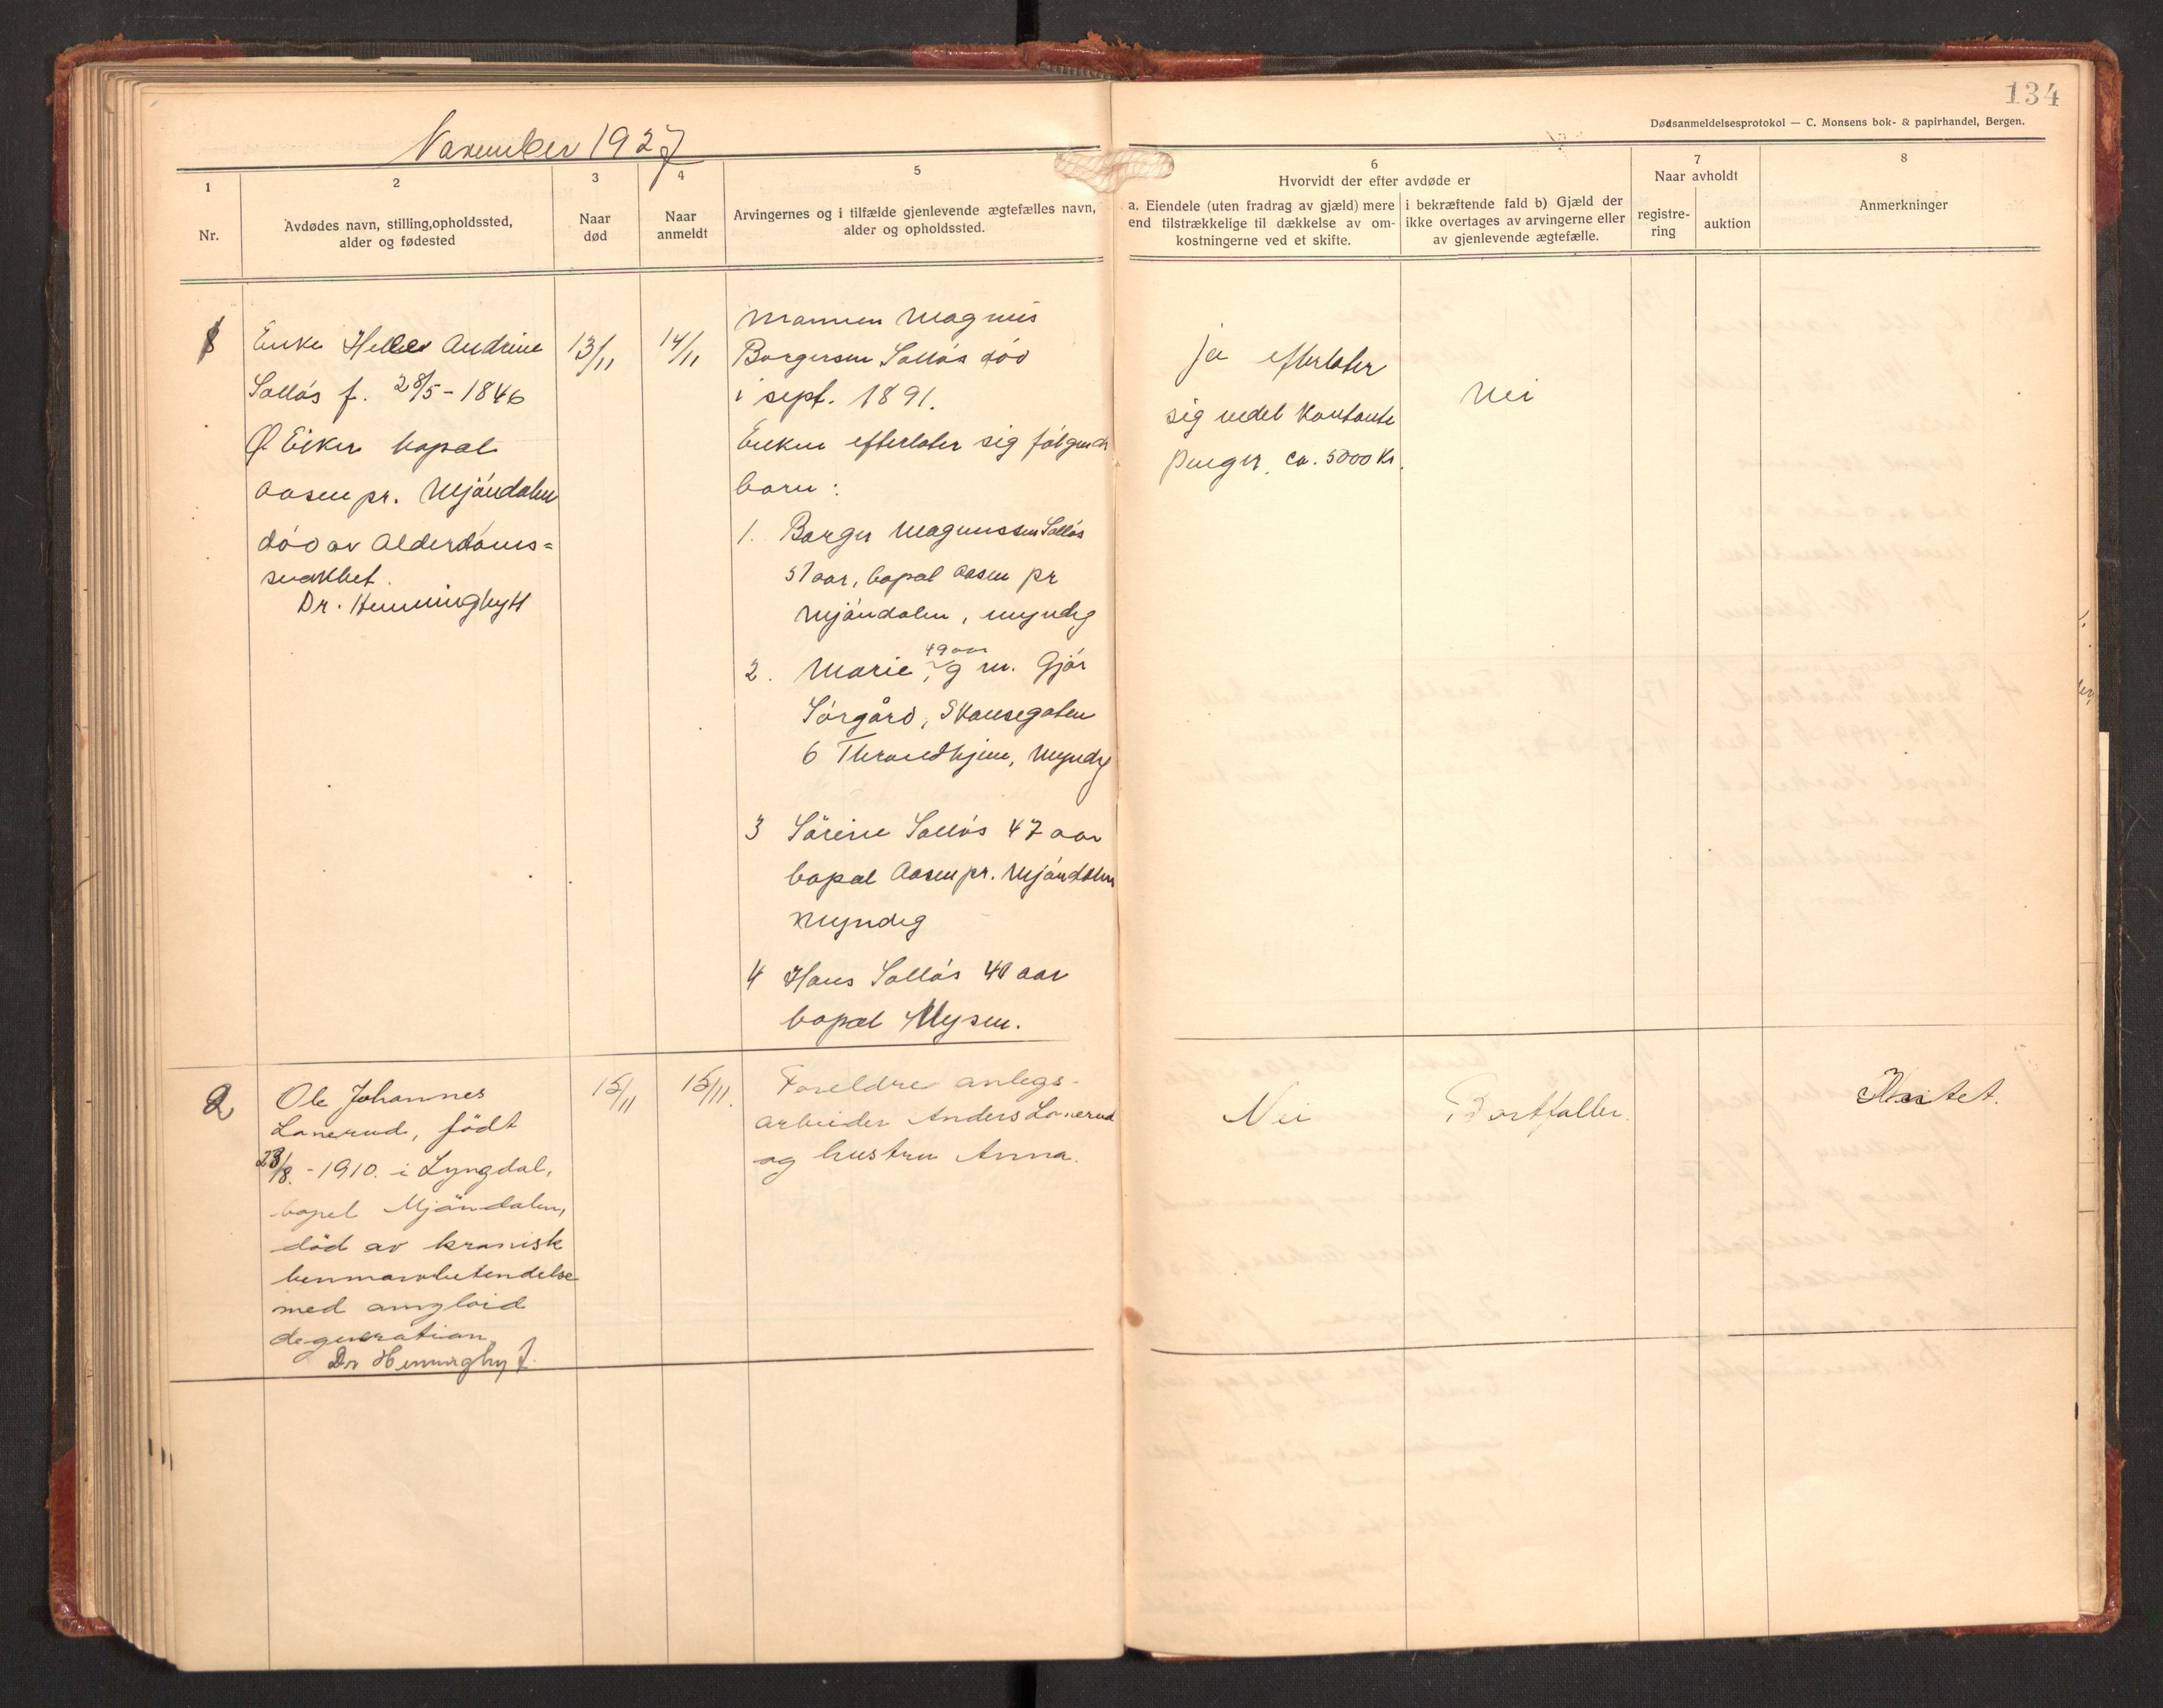 134
Dødsanmeldelsesprotokol — C. Monsens bok- & papirhandel, Bergen.
November 1927
1
Nr.
2
Avdødes navn, stilling,opholdssted,
alder og fødested
3
Naar
død
4
Naar
anmeldt
5
Arvingernes og i tilfælde gjenlevende ægtefælles navn,
alder og opholdssted.
6
Hvorvidt der efter avdøde er
a. Eiendele (uten fradrag av gjæld) mere
end tilstrækkelige til dækkelse av om-
kostningerne ved et skifte.
i bekræftende fald b) Gjæld der
ikke overtages av arvingerne eller
av gjenlevende ægtefælle.
7
Naar avholdt
registre-
ring
auktion
8
Anmerkninger
1
Enke Helle Andrine
Sollós f. 28/5-1846
Ø Eiker bopæl
Aasen pr. Mjóndalen
dód av Alderdoms=
svakhet.
Dr. Henninghytt
13/11
14/11
Mannen Magnus
Borgersen Sollós dód
i sept. 1891.
Enken efterlater sig fólgende
barn:
1. Borger Magnussen Sollós
51 aar, bopæl Aasen pr
Mjóndalen, myndig
2. Marie, 49 aar g m. Gjór
Sórgård, Skansegaten
6 Throndhjem, Myndig
3 Sórine Sollós 47 aar
bopæl Aasen pr. Mjóndalen
Myndig
4 Hans Sollós 40 aar
bopæl Mysen.
ja efterlater
sig vedel Kontante
Penger ca. 5000 Kr.
Nei
2
Ole Johannes
Lonerud, født
23/8.-1910. i Lyngdal,
bopel Mjöndalen,
död av kronisk
benmarvbetendelse
med amyloid
degeneration.
Dr Henninghytt.
15/11
15/11.
Foreldre anlegs-
arbeider Anders Lonerud
og hustru Anna.
Nei
Bortfaller.